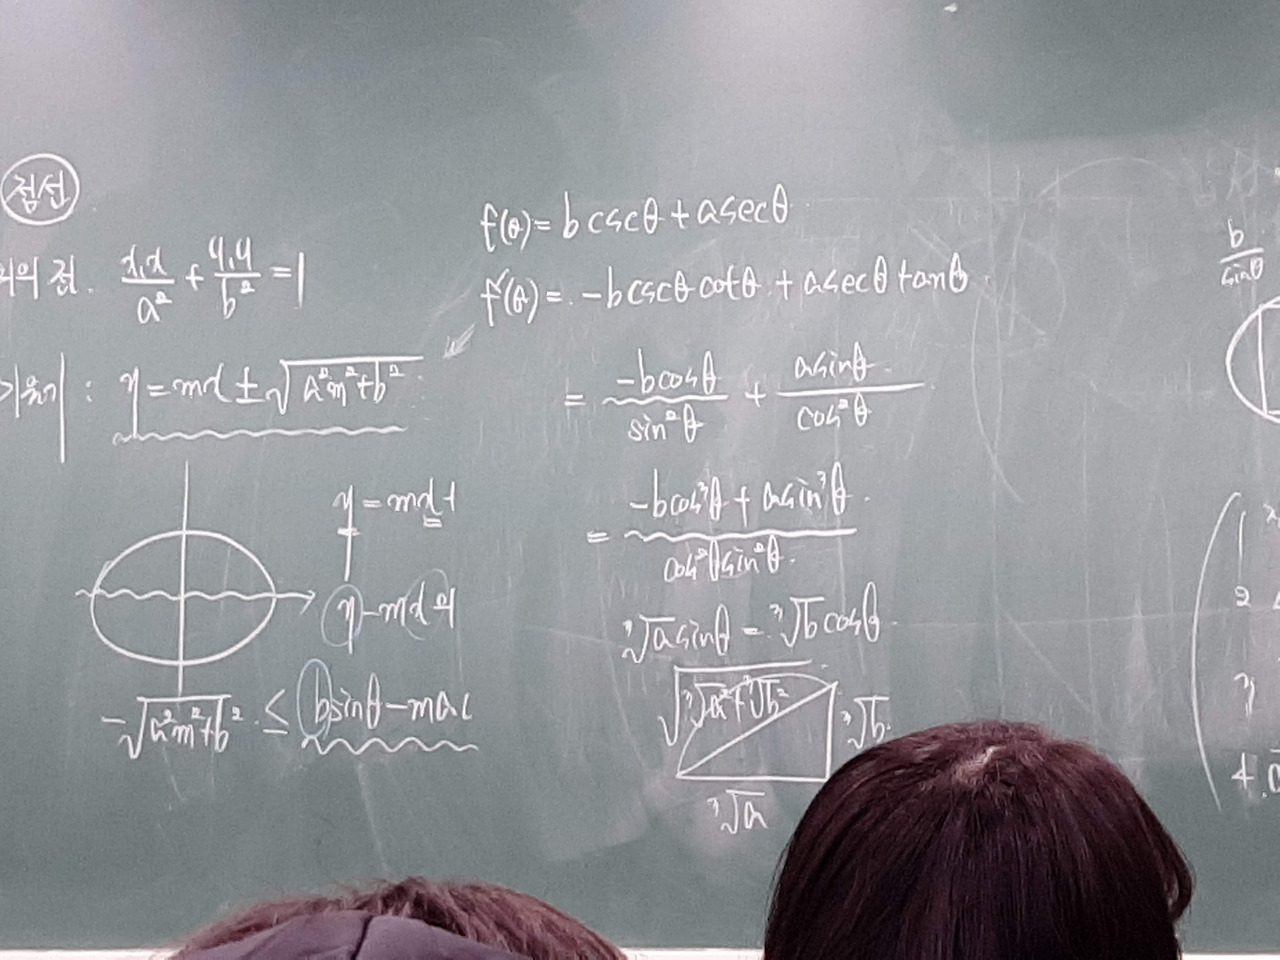 접선
의 점. x₁x/a² + y₁y/b² = 1
기울기 : y = mx ± √(a²m²+b²)
y = mx +
y - mx 의
-√(a²m²+b²) ≤ bsinθ - ma
f(θ) = b cscθ + a secθ
f'(θ) = -b cscθ cotθ + a secθ tanθ
= -bcosθ/sin²θ + asinθ/cos²θ
= (-bcos³θ + asin³θ)/(cos²θ sin²θ)
³√a sinθ = ³√b cosθ
√(³√a² + ³√b²)
³√b
³√a
b/sinθ
1
2
3
4.